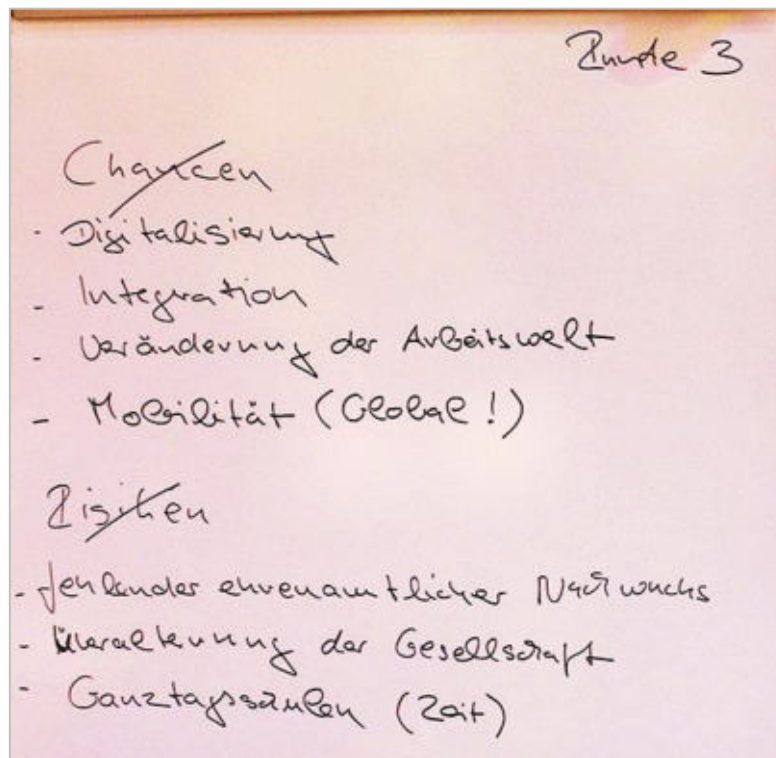 Runde 3
Chancen
- Digitalisierung
- Integration
- Veränderung der Arbeitswelt
- Mobilität (Global!)
Risiken
- fehlender ehrenamtlicher Nachwuchs
- Überalterung der Gesellschaft
- Ganztagsschulen (Zeit)